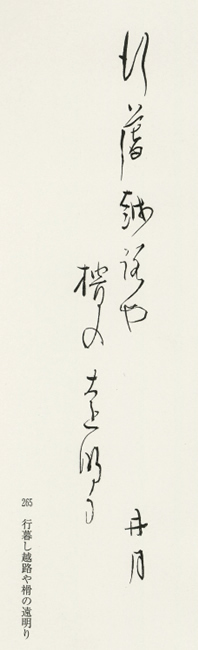 行暮し越路や
榾の遠明り
井月
265 行暮し越路や榾の遠明り